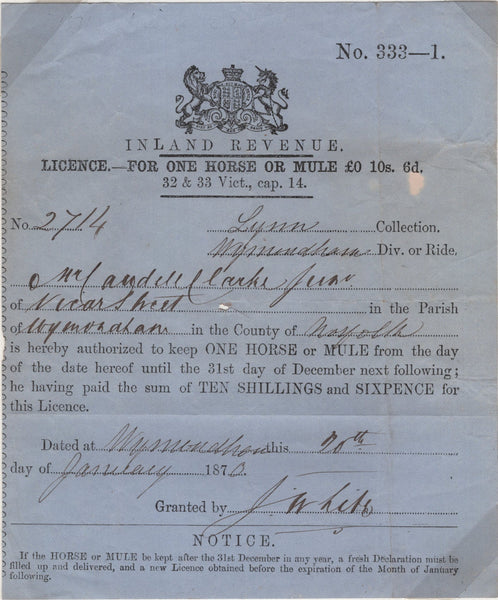 No. 333—1.
INLAND REVENUE.
LICENCE.—FOR ONE HORSE OR MULE £0 10s. 6d.
32 & 33 Vict., cap. 14.
No. 2714 Lynn Collection.
Wymondham Div. or Ride.
Mr Clarke Junr
of Vicar Street in the Parish
of Wymondham in the County of Norfolk
is hereby authorized to keep ONE HORSE or MULE from the day
of the date hereof until the 31st day of December next following;
he having paid the sum of TEN SHILLINGS and SIXPENCE for
this Licence.
Dated at Wymondham this 20th
day of January 1870.
Granted by J White
NOTICE.
If the HORSE or MULE be kept after the 31st December in any year, a fresh Declaration must be
filled up and delivered, and a new Licence obtained before the expiration of the Month of January
following.